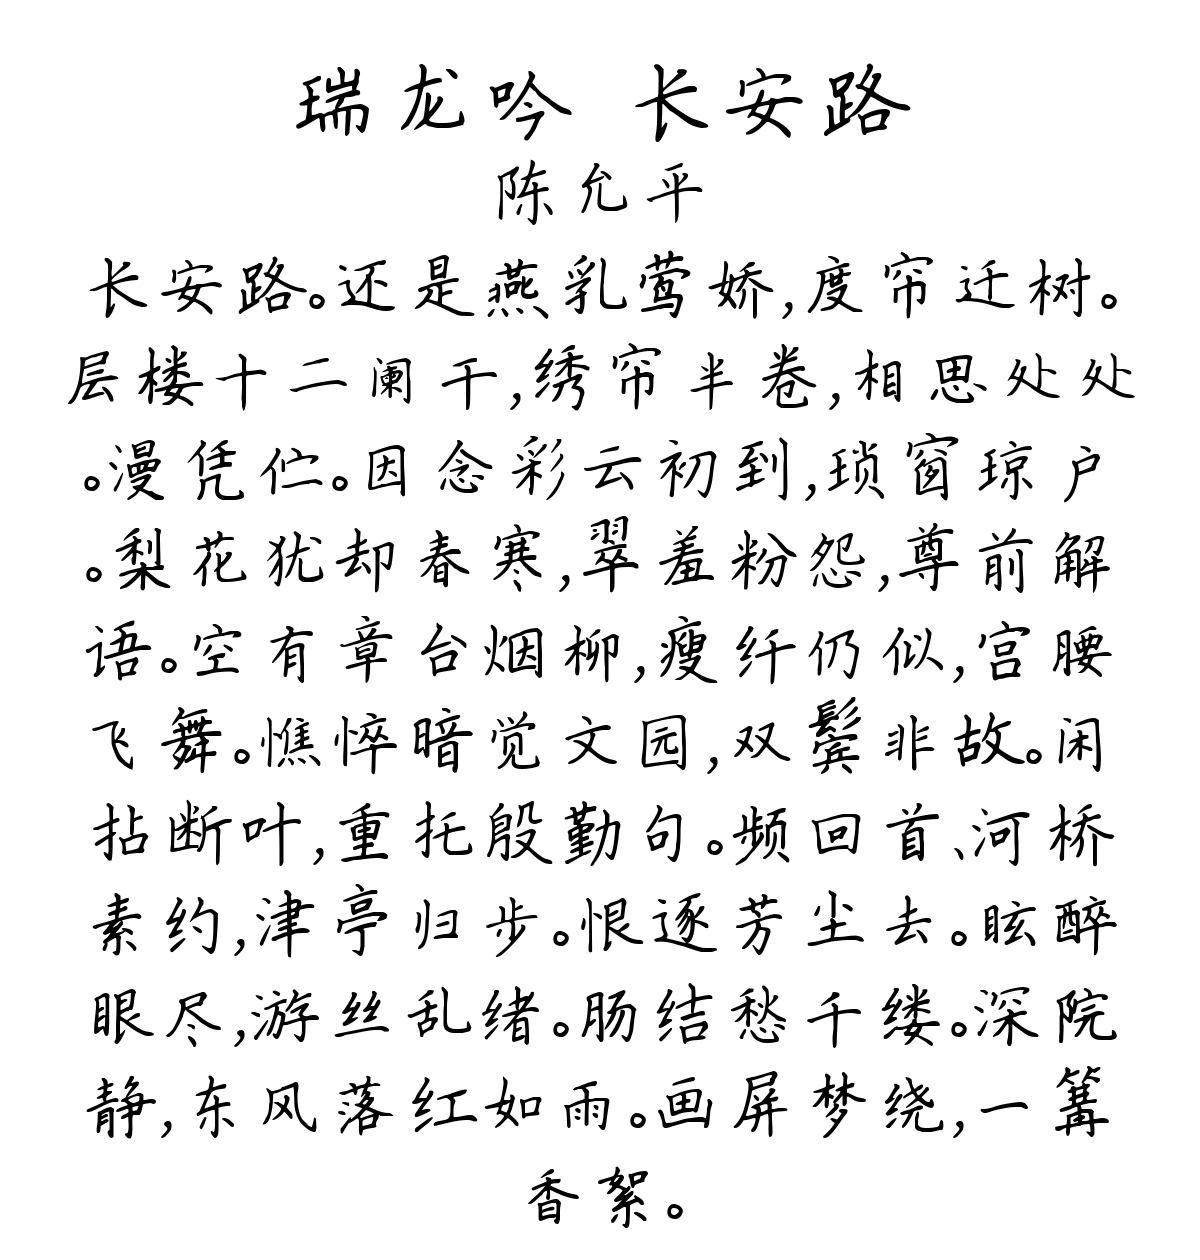 瑞龙吟 长安路
陈允平
长安路。还是燕乳莺娇,度帘迁树。
层楼十二阑干,绣帘半卷,相思处处
。漫凭伫。因念彩云初到,琐窗琼户
。梨花犹却春寒,翠羞粉怨,尊前解
语。空有章台烟柳,瘦纤仍似,宫腰
飞舞。憔悴暗觉文园,双鬓非故。闲
拈断叶,重托殷勤句。频回首、河桥
素约,津亭归步。恨逐芳尘去。眩醉
眼尽,游丝乱绪。肠结愁千缕。深院
静,东风落红如雨。画屏梦绕,一篝
香絮。